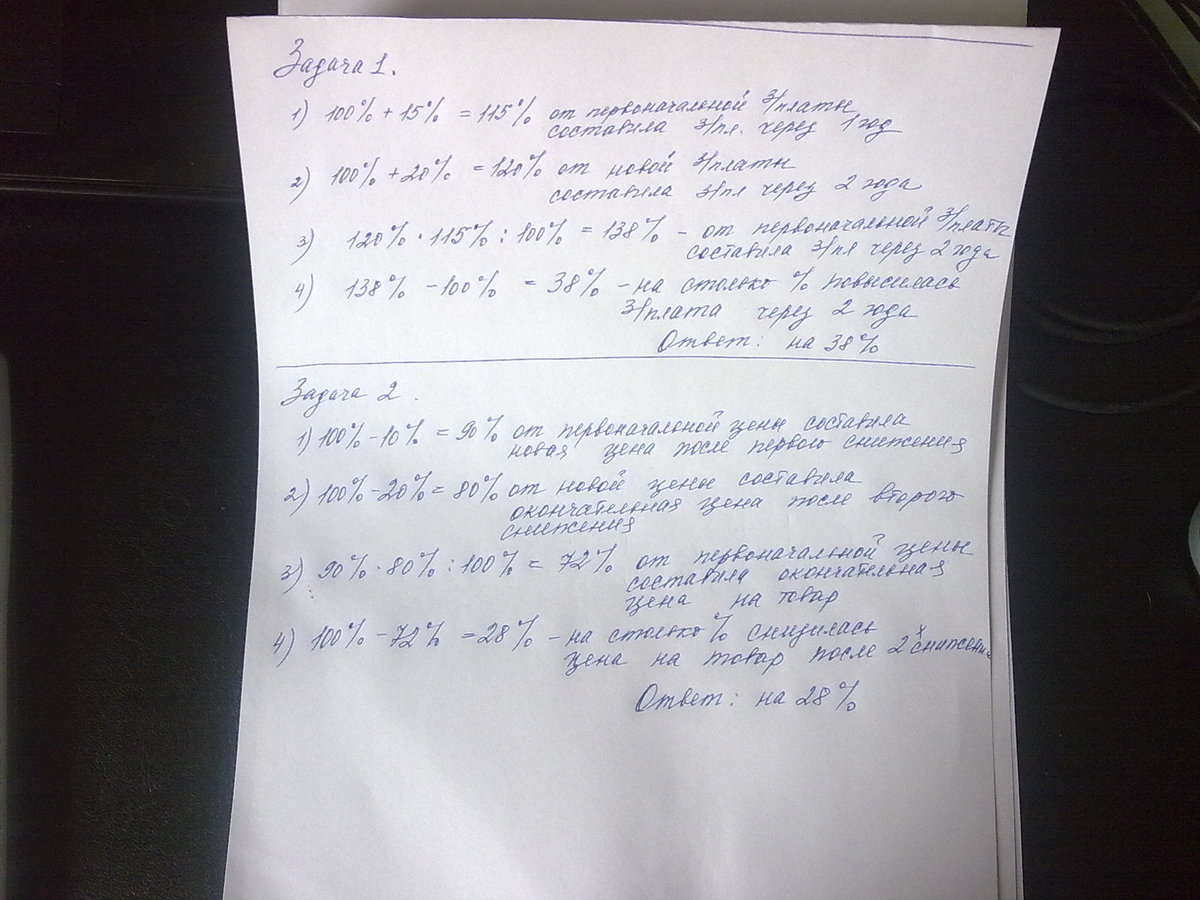 Задача 1.
1) 100% + 15% = 115% от первоначальной з/платы
составила з/пл. через 1 год
2) 100% + 20% = 120% от новой з/платы
составила з/пл через 2 года
3) 120% · 115% : 100% = 138% – от первоначальной з/платы
составила з/пл через 2 года
4) 138% – 100% = 38% – на столько % повысилась
з/плата через 2 года
Ответ: на 38%
Задача 2.
1) 100% – 10% = 90% от первоначальной цены составила
новая цена после первого снижения
2) 100% – 20% = 80% от новой цены составила
окончательная цена после второго
снижения
3) 90% · 80% : 100% = 72% от первоначальной цены
составила окончательная
цена на товар
4) 100% – 72% = 28% – на столько % снизилась
цена на товар после 2х снижени
Ответ: на 28%